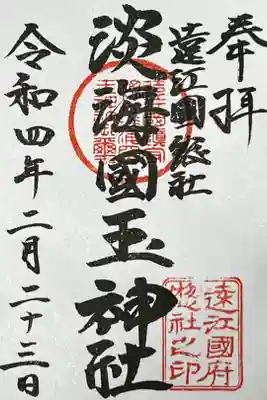 奉拝
遠江國総社
淡海國玉神社
令和四年二月二十三日
遠江國府
惣社之印